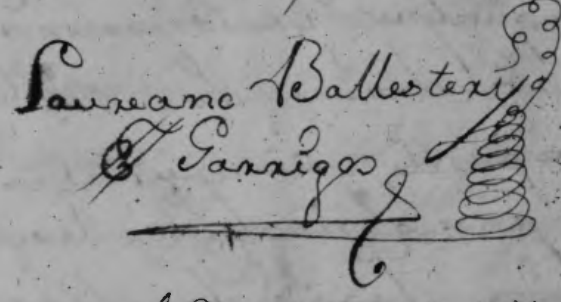 Laureano Ballester y
Garrigos